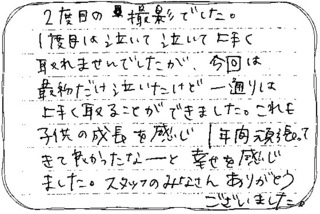 2度目の撮影でした。
1度目は泣いて泣いて上手く
取れませんでしたが、今回は
最初だけ泣いたけど一通りは
上手く取ることができました。これも
子供の成長を感じ1年間頑張って
きて良かったなーと幸せを感じ
ました。スタッフのみなさんありがとう
ございました。